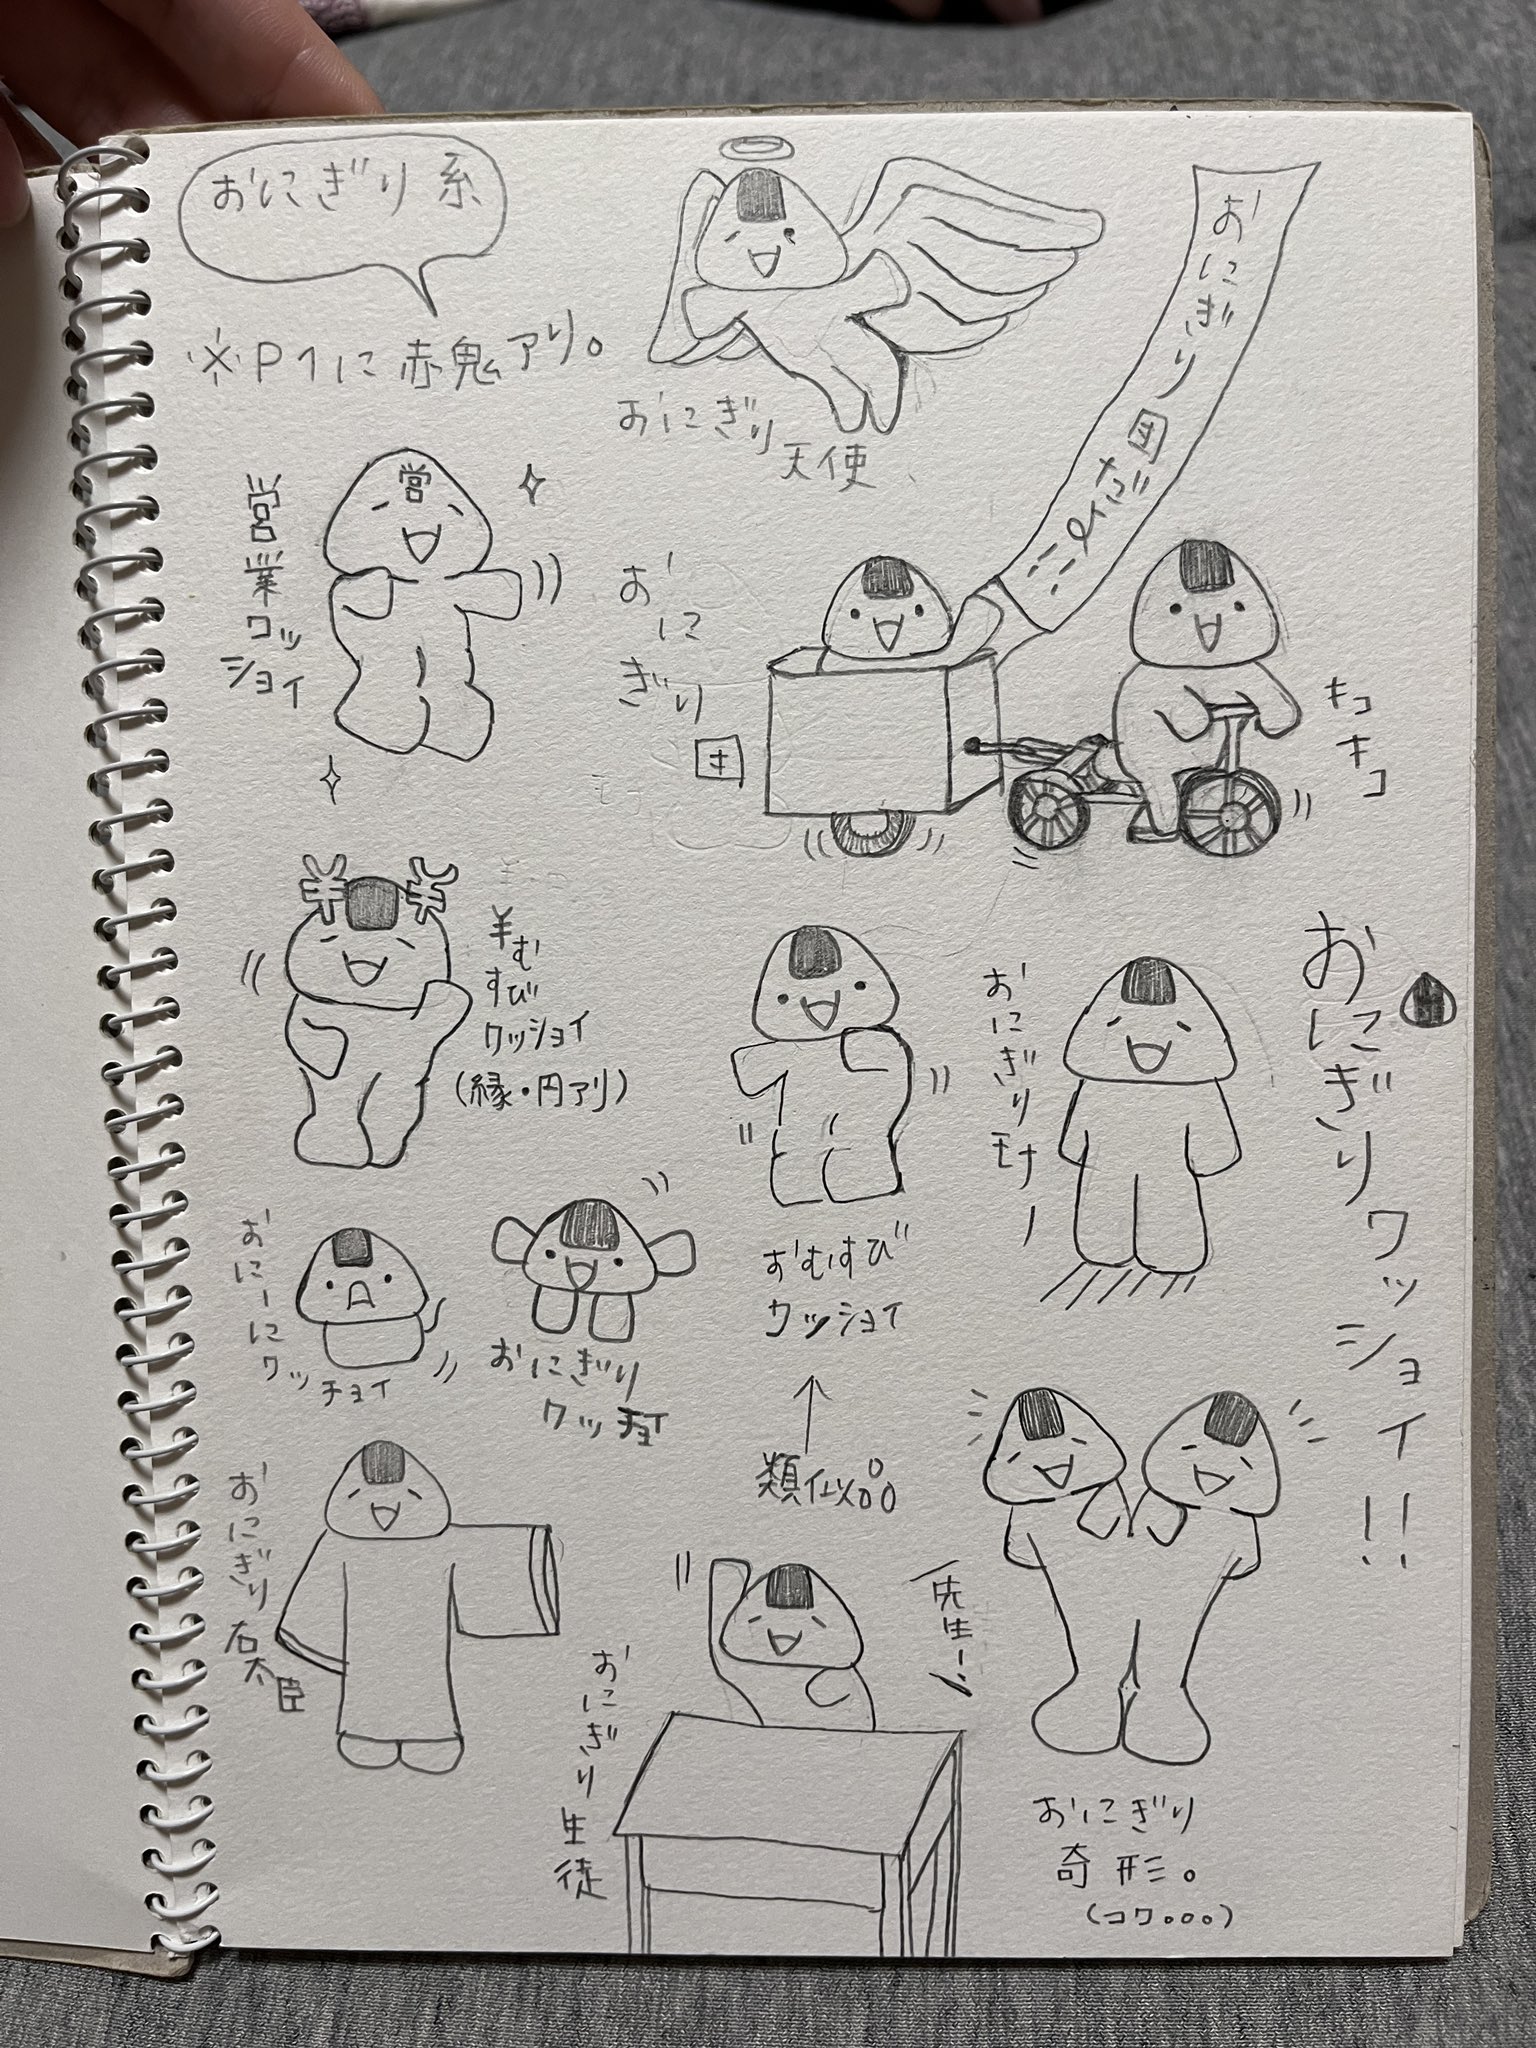 おにぎり系
※P1に赤鬼アリ。
おにぎり
天使
おにぎり団だぞぃ
営業ワッ
ショイ
おにぎり
団
キコ
キコ
¥むすび
ワッショイ
(縁・円アリ)
おにぎりワッショイ!!
おにぎりモナー
おむすび
ワッショイ
類似品
おにーに
ワッチョイ
おにぎり
ワッチョイ
おにぎり
右大臣
おにぎり
生徒
先生ー!
おにぎり
奇形。
(コワ。。。)
営